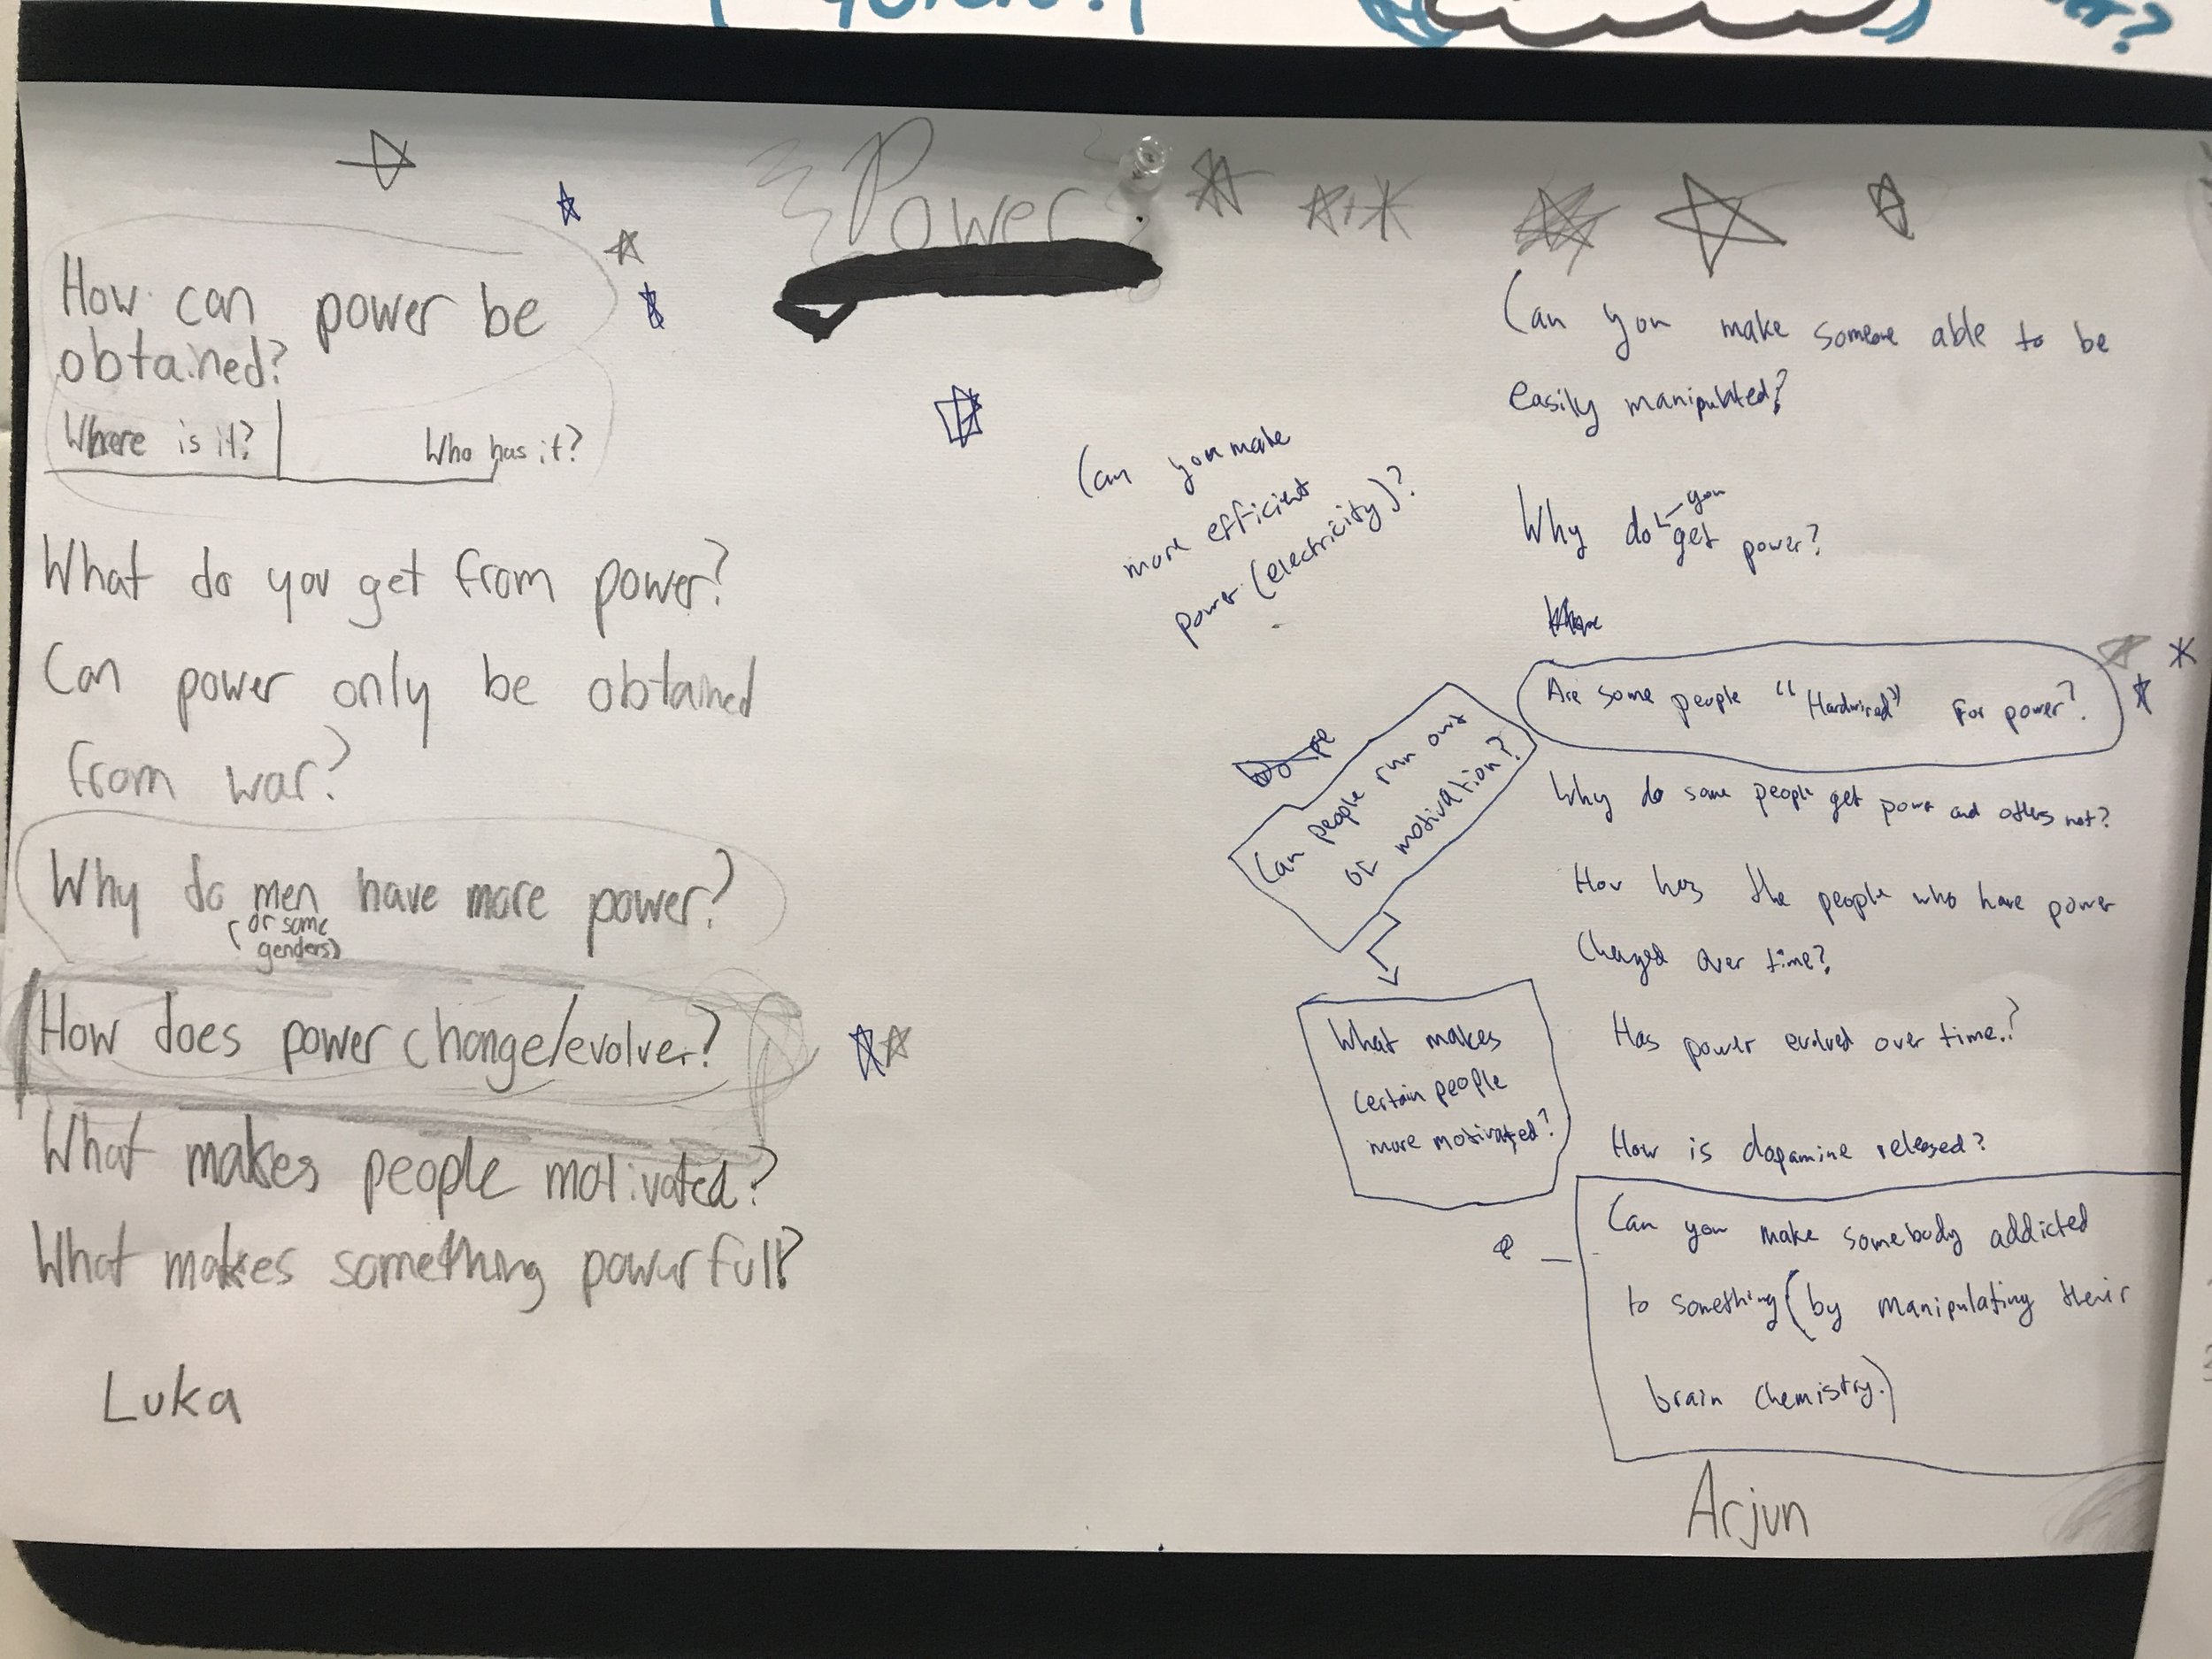 Power
How can power be
obtained?
Where is it?
Who has it?
What do you get from power?
Can power only be obtained
from war?
Why do men have more power?
(or some
genders)
How does power change/evolver?
What makes people motivated?
What makes something powerfull?
Luka
Can you make
more efficient
power (electricity)?
Can people run out
of motivation?
What makes
certain people
more motivated?
Can you make someone able to be
easily manipulated?
you
Why do get power?
Are some people "Hardwired" for power?
Why do some people get power and others not?
How has the people who have power
changed over time?
Has power evolved over time?
How is dopamine released?
Can you make somebody addicted
to something (by manipulating their
brain chemistry.)
Arjun